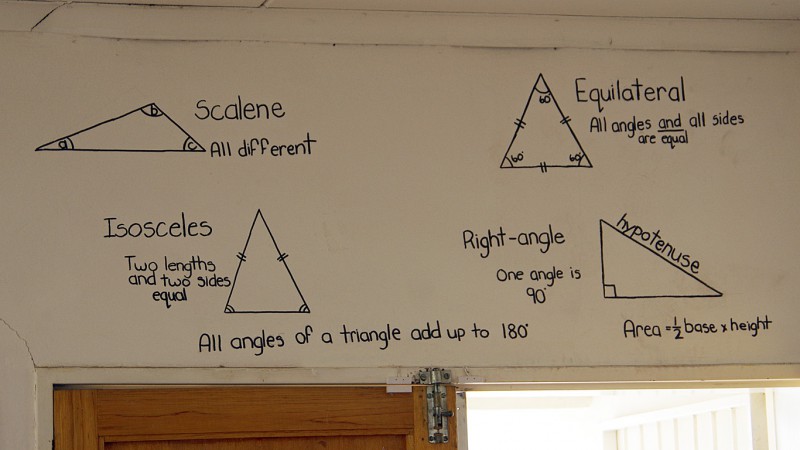 Scalene
All different
a
b
c
Equilateral
All angles and all sides
are equal
60°
60°
60°
Isosceles
Two lengths
and two sides
equal
Right-angle
One angle is
90°
hypotenuse
Area = ½ base x height
All angles of a triangle add up to 180°